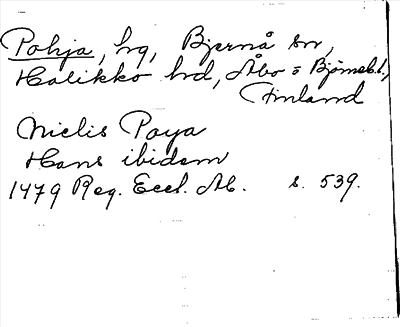 Pohja, by, Bjernå sn,
Halikko hd, Åbo o Björneb. l.,
Finland
Nielis Poya
Hans ibidem
1479 Reg. Eccl. Ab. s. 539.